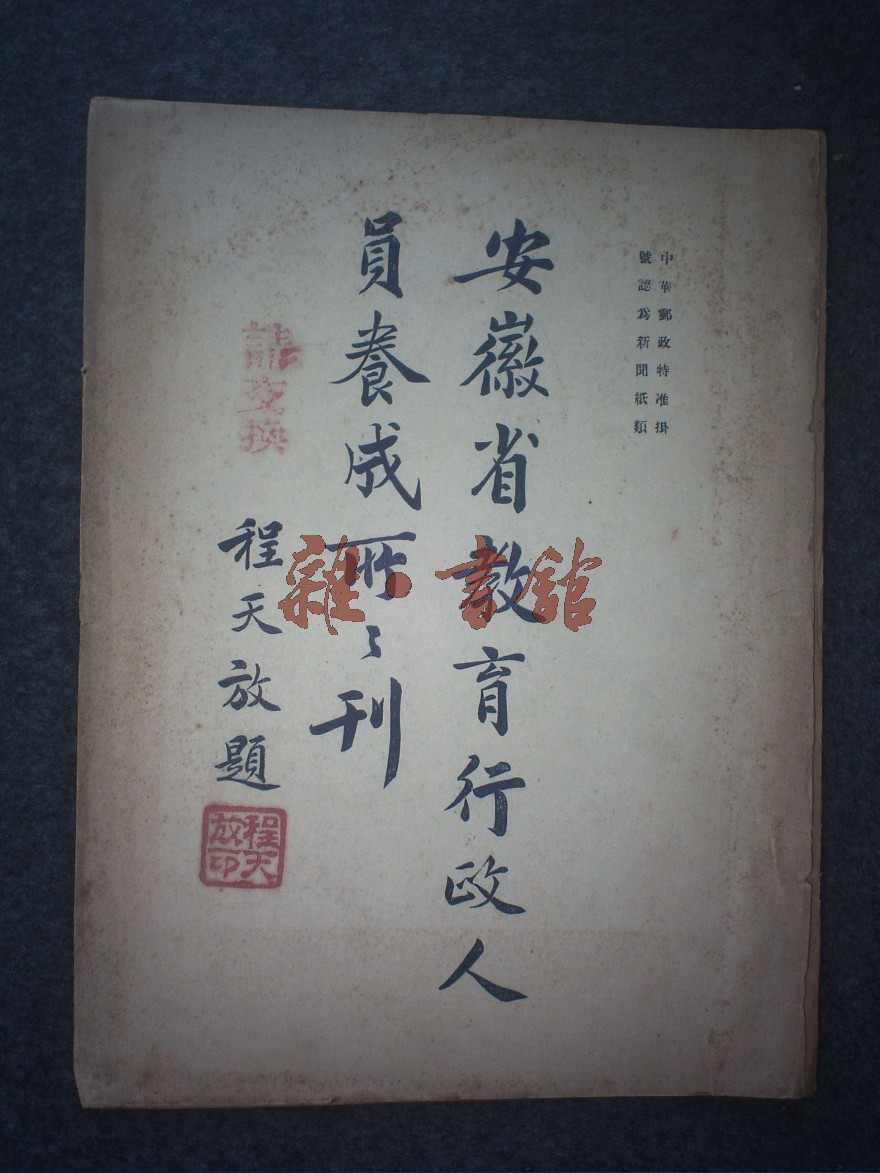 中華郵政特准掛
號認爲新聞紙類
安徽省教育行政人
員養成所々刊
程天放題
程天放印
請交換
雜·書館